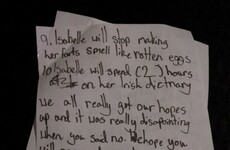 9. Isabelle will stop making
her farts smell like rotten eggs
10 Isabelle will spend (2) hours
on her Irish dictnary
we all really got our hopes
up and it was really disapointing
when you said no. I hope you
will